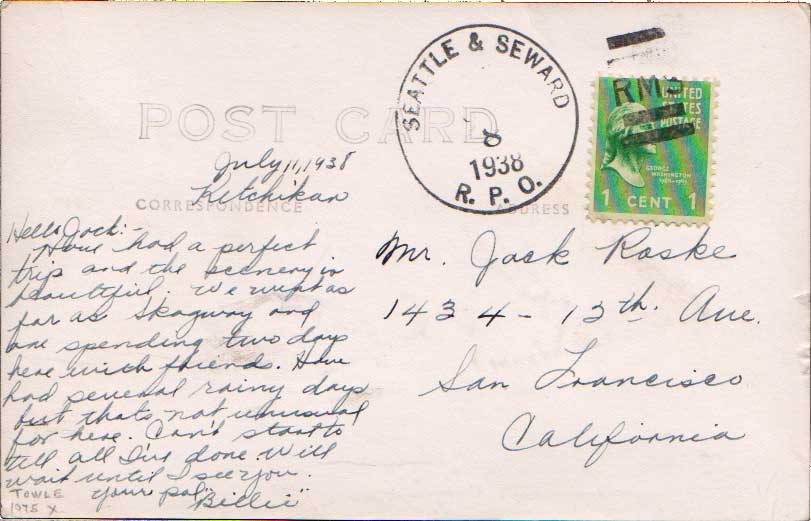 SEATTLE & SEWARD
8
1938
R. P. O.
RMS
UNITED
STATES
POSTAGE
GEORGE
WASHINGTON
1 CENT 1
POST CARD
July 11, 1938
Ketchikan
CORRESPONDENCE
ADDRESS
Hello Jack:-
Have had a perfect
trip and the scenery is
beautiful. We went as
far as Skagway and
are spending two days
here with friends. Have
had several rainy days
but thats not unusual
for here. Can't start to
tell all I've done. Will
wait until I see you.
your pal
"Billie"
TOWLE
1975 X
Mr. Jack Roske
1434 - 13th. Ave.
San Francisco
California